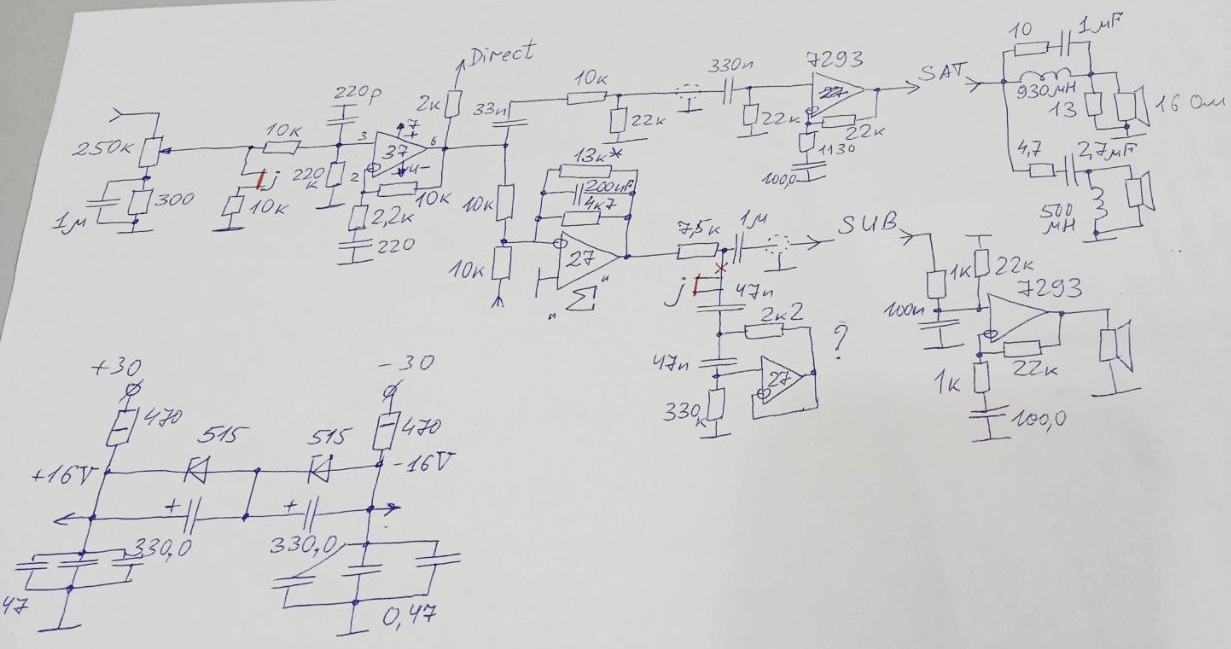 Direct
10
1μF
220p
2к
33n
10к
330n
7293
SAT
930мН
13
16 Ом
250к
10к
3
7
+
37
6
22к
22к
27
22к
1130
100,0
4,7
2,7μF
500
мН
j
220
к
2
4-
10к
300
1м
10к
2,2к
220
10к
13к*
200nF
4к7
10к
27
"Σ"
7,5к
1м
SUB
1к
22к
7293
100n
22к
1к
100,0
j
47n
2к2
47n
27
?
330
к
+30
-30
470
470
515
515
+16V
-16V
+
+
330,0
330,0
47
0,47